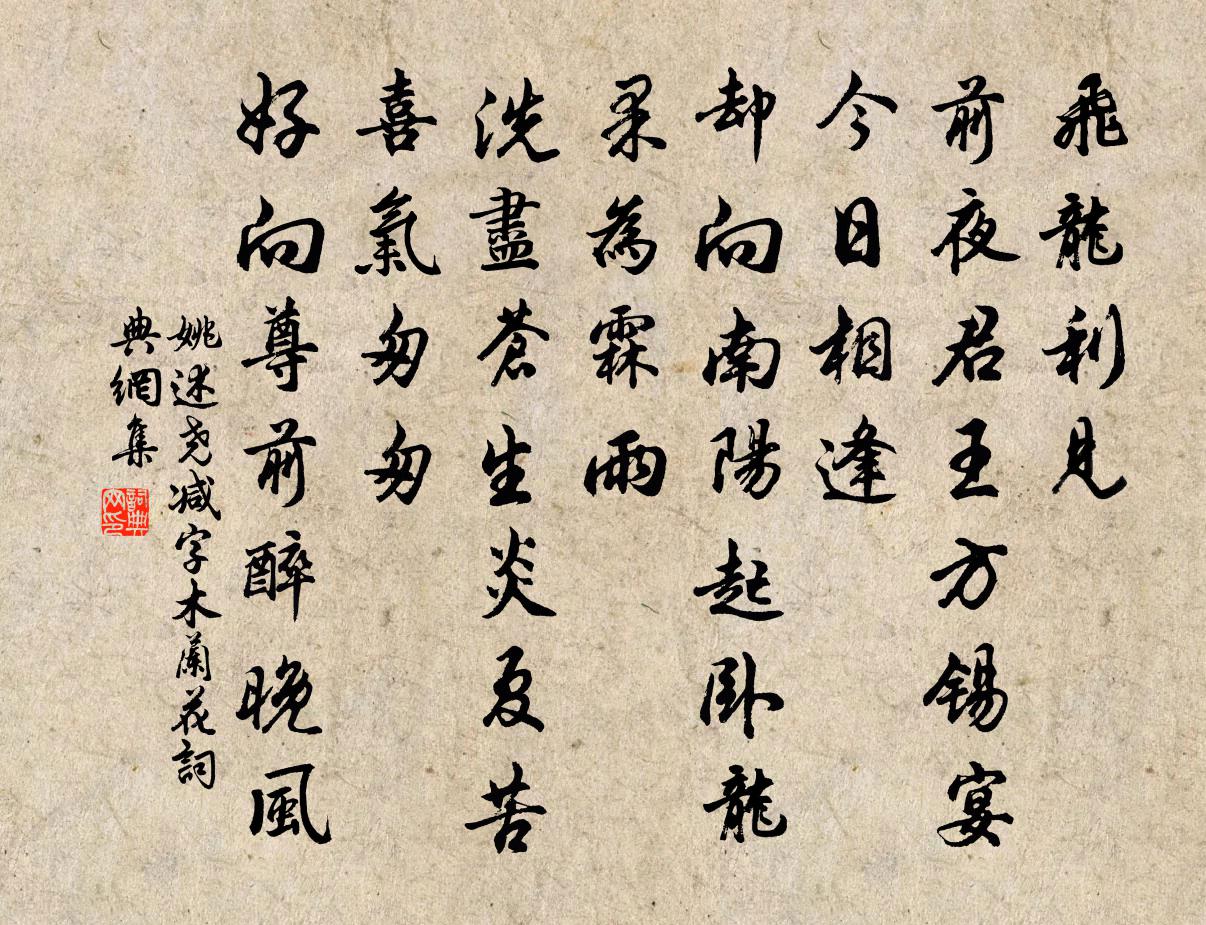 飛龍利見
前夜君王方錫宴
今日相逢
却向南陽起臥龍
果為霖雨
洗盡蒼生炎夏苦
喜氣匆匆
好向尊前醉晚風
姚述堯減字木蘭花詞
典網集
詞典網印